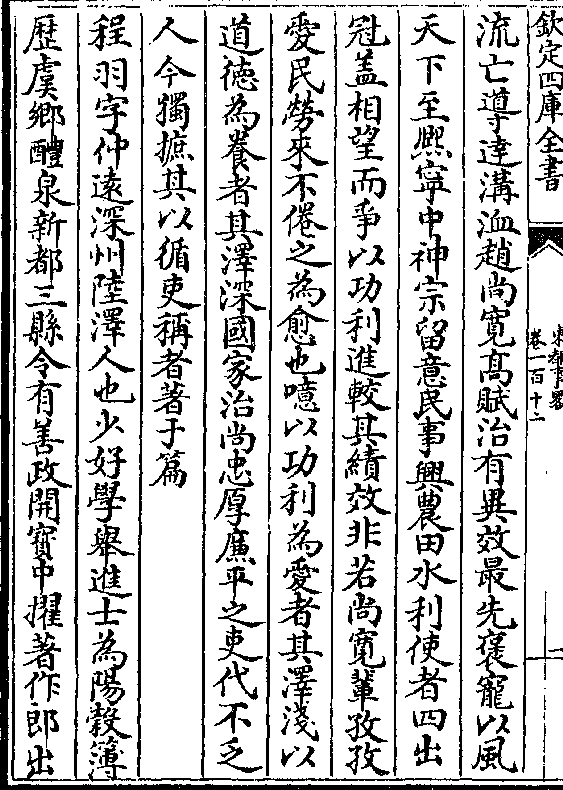 欽定四庫全書
東都事畧
卷一百十二
二
流亡導達溝洫趙尚寛髙賦治有異效最先褒寵以風
天下至熈寧中神宗留意民事興農田水利使者四出
冠盖相望而爭以功利進較其績效非若尚寛輩孜孜
愛民勞來不倦之為愈也噫以功利為愛者其澤淺以
道徳為養者其澤深國家治尚忠厚廉平之吏代不乏
人今獨摭其以循吏稱者著于篇
程羽字仲逺深州陸澤人也少好學舉進士為陽穀簿
歴虞鄉醴泉新都三縣令有善政開寳中擢著作郎出